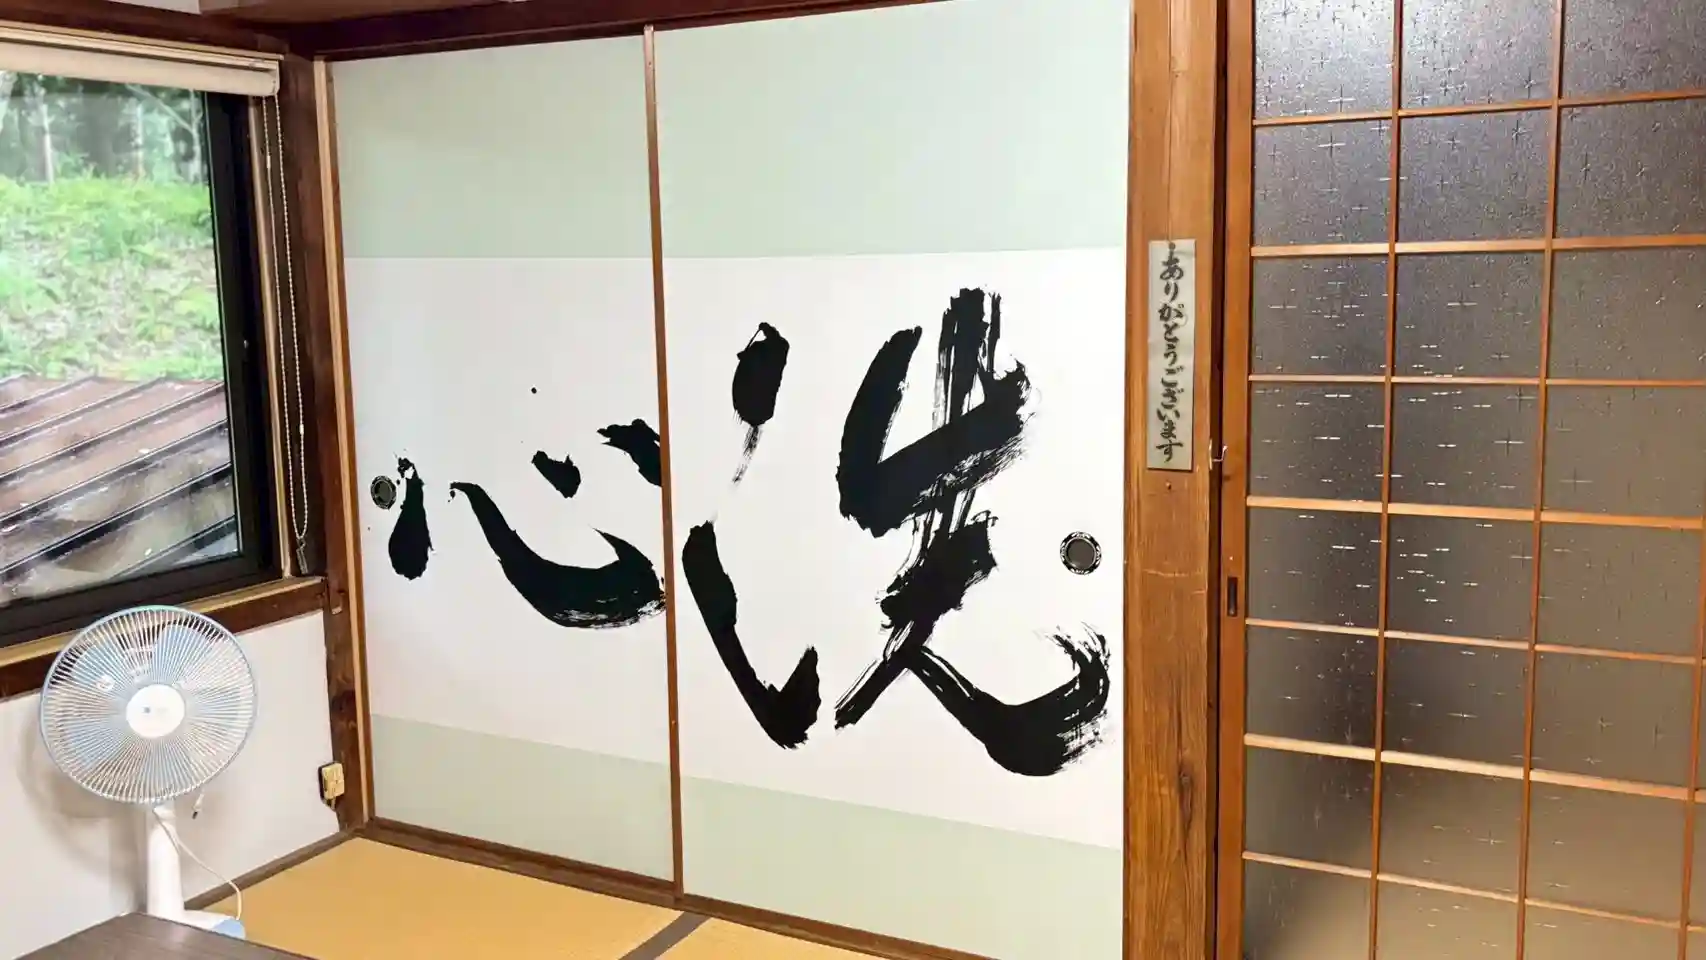 洗心
ありがとうございます